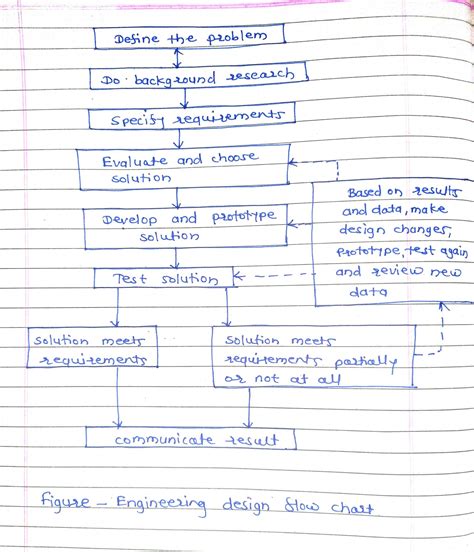 Define the problem
Do · background research
Specify requirements
Evaluate and choose
solution
Develop and prototype
solution
Test solution
Based on results
and data, make
design changes,
prototype, test again
and review new
data
solution meets
requirements
solution meets
requirements partially
or not at all
communicate result
figure – Engineering design flow chart